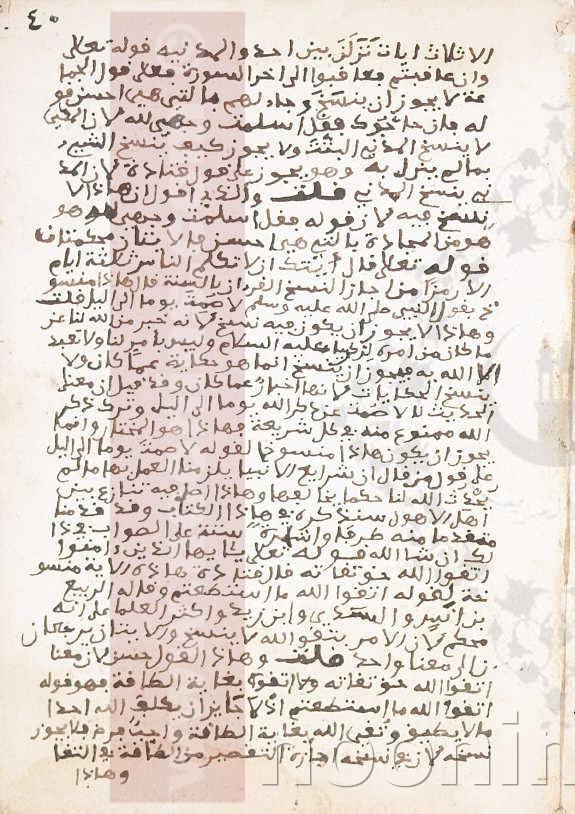 ٤٠
الا ثلاث ايات نزلن بين احد والمدينة قوله تعلى
وان عاقبتم فعاقبوا الى اخر السورة فعلى قول الجما
عة لا يجوز ان ينسخ وجادلهم بالتي هي احسن قو
له فان حاجوك فقل اسلمت وجهي لله لان المكي
لا ينسخ المدني البتة ولا يجوز كيف ينسخ الشيء
بما لم ينزل به وهو يجوز على قول قتادة لان المد
ني ينسخ المدني قلت والذي اقول ان هذا لا
ينسخ فيه لان قوله فقل اسلمت وجهي لله هو
هو من المجادلة بالتي هي احسن فالايتان محكمتان
قوله تعلى قال ايتك الا تكلم الناس ثلثة ايام
الا رمزا من اجاز النسخ القران بالسنة قال هذا منسو
خ بقول النبي صلى الله عليه وسلم لا صمت يوما الى اليل قلت
وهذا لا يجوز ان يكون فيه نسخ لانه خبر من الله لنا عن
ما كان من امره لزكريا عليه السلام وليس بامر لنا ولا تعبد
الا الله به فيجوز ان ينسخ انما هو حكاية عما كان ولا
ينسخ الحكايات لانها اخبار عما كان وقد قيل ان معنى
الحديث لا صمت عن ذكر الله يوما الى اليل وترك ذكر
الله ممنوع منه في كل شريعة فهذا هو المختار وانما
يجوز ان يكون هذا منسوخا لقوله لا صمت يوما الى اليل
على قول من قال ان شرايع الانبيا يلزمنا العمل بها ما لم
يحدث الله لنا حكما يخالفها وهذا اصل فيه تنازع بين
اهل الاصول سنذكره في هذا الكتاب وقد قدمنا
منه طرفا واشهره سنة على الصواب في هذا
لكن ان شا الله قوله تعلى يايها الذين امنوا
اتقوا الله حق تقاته قال قتادة هذه الاية منسو
خة لقوله اتقوا الله ما استطعتم وقاله الربيع
بن انس والسدي وابن زيد واكثر العلما على انه
محكم لان الامر بتقوا الله لا ينسخ والايتان يرجعان
الى معنا واحد قلت وهذا القول حسن لان معنا
اتقوا الله حق تقاته اتقوه بغاية الطاقة فهو قوله
اتقوا الله ما استطعتم اذ لا جايز ان يكلف الله احدا
ما لا يطيق وتقى الله بغاية الطاقة واجب فرض فلا يجوز
نسخه لان في نسخه اجازة التقصير من الطاقة في التقا
وهذا
noormags